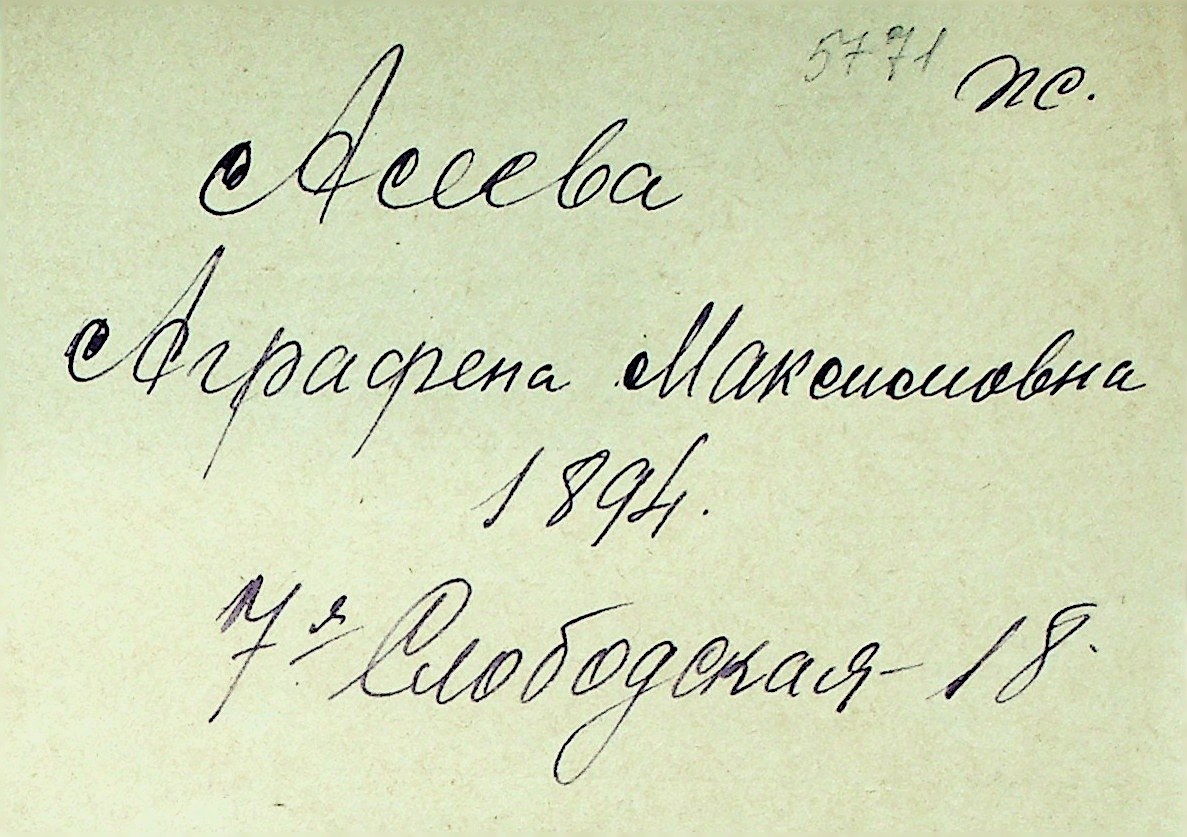 5771 ж.
Асеева
Аграфена Максимовна
1894.
7я Слободская - 18.